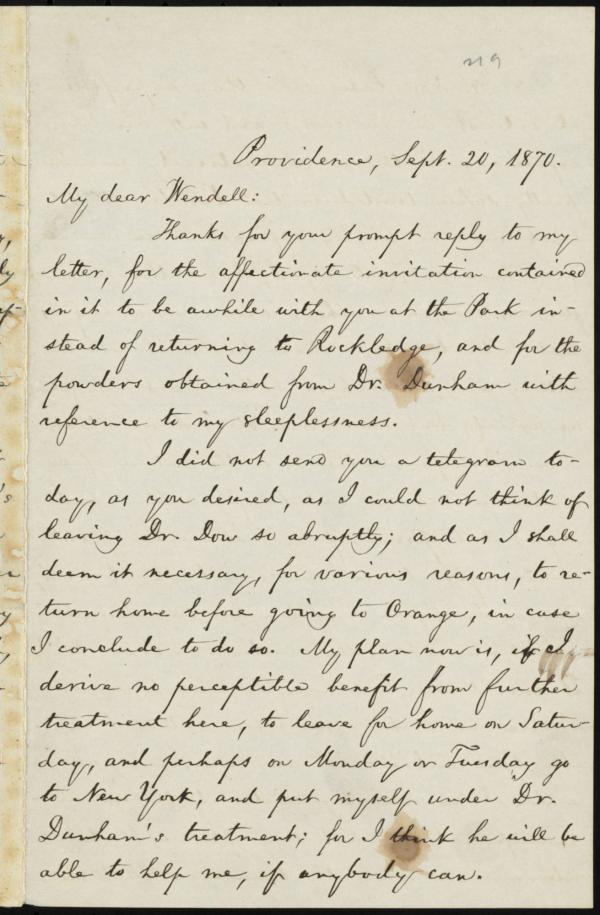 219
Providence, Sept. 20, 1870.
My dear Wendell:
Thanks for your prompt reply to my
letter, for the affectionate invitation contained
in it to be awhile with you at the Park in-
stead of returning to Rockledge, and for the
powders obtained from Dr. Dunham with
reference to my sleeplessness.
I did not send you a telegram to-
day, as you desired, as I could not think of
leaving Dr. Dow so abruptly; and as I shall
deem it necessary, for various reasons, to re-
turn home before going to Orange, in case
I conclude to do so. My plan now is, if I
derive no perceptible benefit from further
treatment here, to leave for home on Satur-
day, and perhaps on Monday or Tuesday go
to New York, and put myself under Dr.
Dunham's treatment; for I think he will be
able to help me, if anybody can.